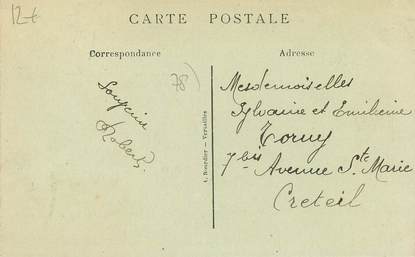 12€
CARTE POSTALE
Correspondance
Adresse
78)
Souvenir
Robert
A. Bourdier — Versailles
Mesdemoiselles
Sylvaine et Emilienne
Torny
7 bis Avenue Ste Marie
Creteil